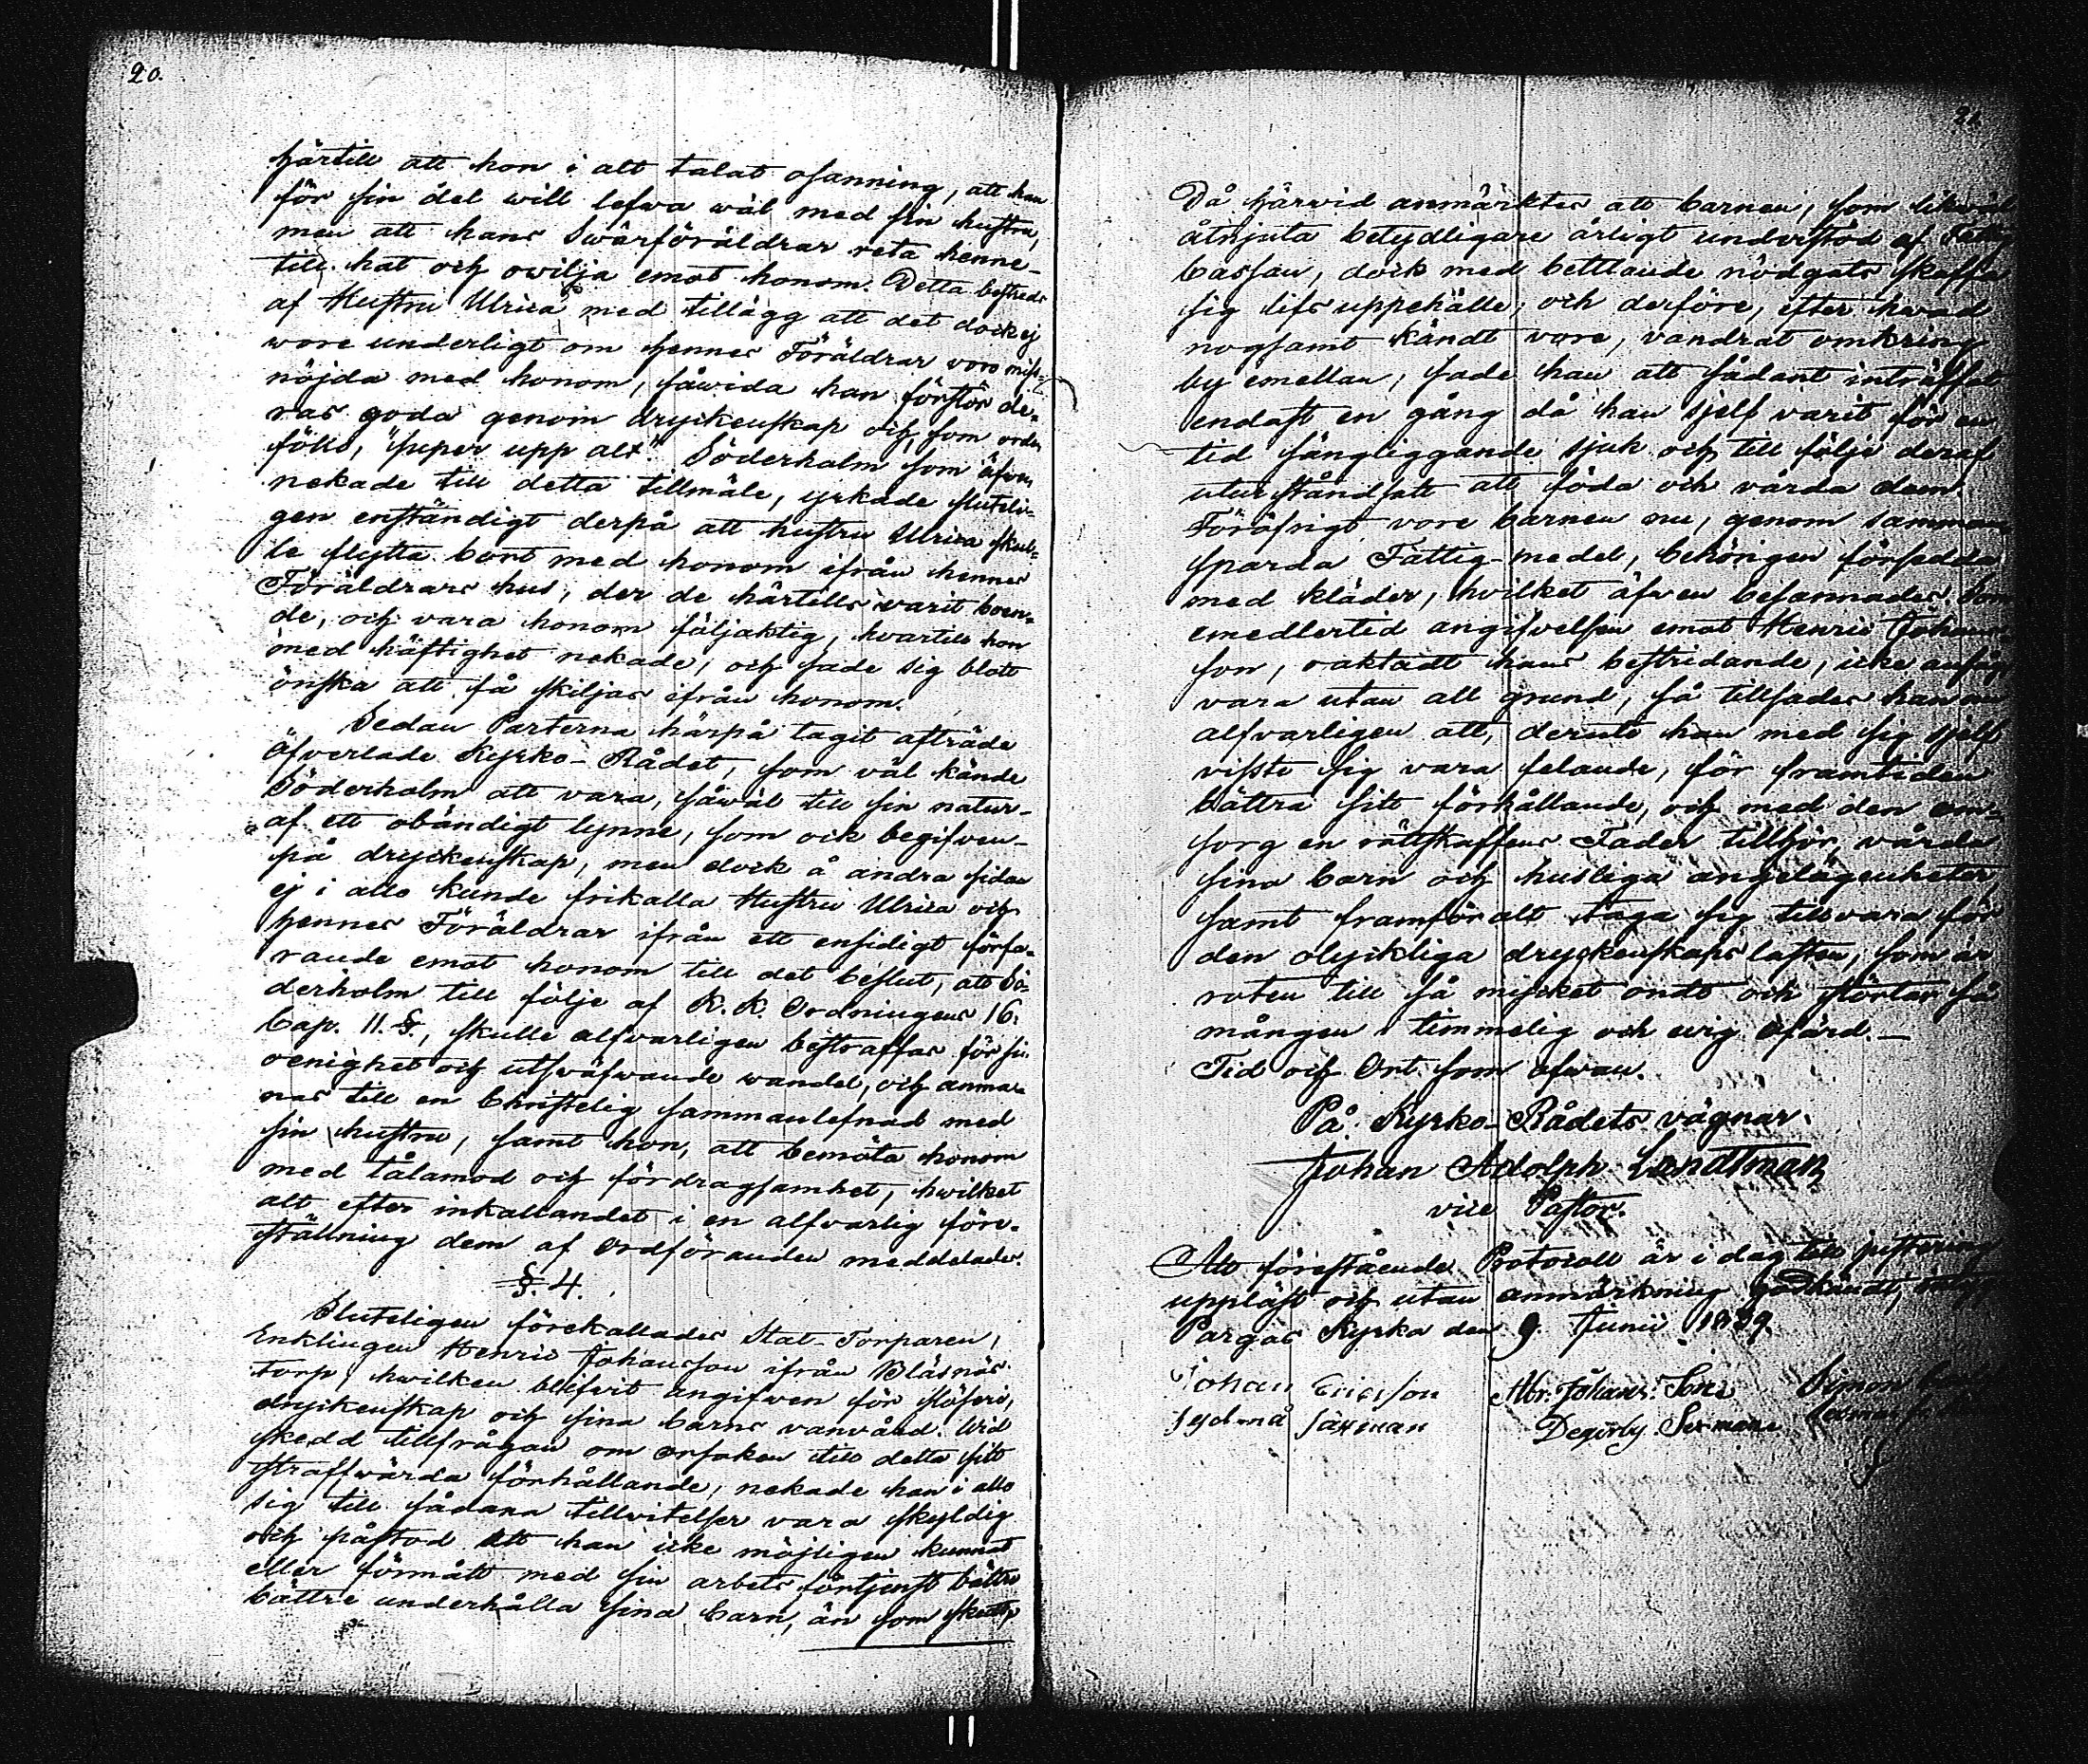 20.
härtill att hon i alt talat osanning, att han
för sin del will lefwa wäl med sin hustru,
men att hans Swärföräldrar reta henne
till hat och owilja emot honom. Detta bestreds
af Hustru Ulrica med tillägg att det dock ej
wore underligt om hennes Föräldrar voro miss-
nöjda med honom, såwida han förstör de-
ras goda genom dryckenskap och, som orden
föllo, "super upp alt". Söderholm som äfwen
nekade till detta tillmäle, yrkade sluteli-
gen enständigt derpå att hustru Ulrica skul-
le flytta bort med honom ifrån hennes
Föräldrars hus, der de härtills varit boen-
de, och vara honom följaktig, hvartill hon
med häftighet nekade, och sade sig blott
önska att få skiljas ifrån honom.
Sedan Parterna härpå tagit afträde
öfverlade Kyrko-Rådet, som väl kände
Söderholm att vara, såwäl till sin natur
af ett obändigt lynne, som ock begifven
på dryckenskap, men dock å andra sidan
ej i allo kunde frikalla Hustru Ulrica och
hennes Föräldrar ifrån ett ensidigt förfa-
rande emot honom till det beslut, att Sö-
derholm till följe af K. K. Ordningens 16.
Cap. 11. §., skulle alfvarligen bestraffas för sin
oenighet och utsväfwande wandel, och anma-
nas till en Christelig sammanlefnad med
sin hustru, samt hon, att bemöta honom
med tålamod och fördragsamhet, hwilket
alt efter inkallandet i en alfvarlig före-
ställning dem af Ordföranden meddelades.
§. 4.
Sluteligen förekallades Stat-Torparen,
Enklingen Henric Johansson ifrån Bläsnäs
torp, hwilken blifvit angifven för slöseri,
dryckenskap och sina barns vanvård. Wid
skedd tillfrågan om orsaken till detta sitt
straffwärda förhållande, nekade han i allo
sig till sådana tillvitelser vara skyldig
och påstod att han icke möjligen kunnat
eller förmått med sin arbets förtjenst bättre
bättre underhålla sina barn, än som skedt.
21.
Då härvid anmärktes att barnen, som likwäl
åtnjuta betydligare årligt understöd af Fattig
cassan, dock med bettlande nödgats skaffa
sig lifs uppehälle, och derföre, efter hvad
nogsamt kändt vore, vandrat omkring
by emellan, sade han att sådant inträffat
endast en gång då han sjelf varit för en
tid sängliggande sjuk och till följe deraf
utur ståndsatt att föda och vårda dem.
Föröfrigt vore barnen nu, genom samman
sparda Fattig-medel, behörigen försedda
med kläder, hvilket äfwen besannades. Som
emedlertid angifvelsen emot Henric Johans
son, oaktadt hans bestridande, icke ansågs
vara utan all grund, så tillsades han nu
alfvarligen att, derute han med sig sjelf
visste sig vara felande, för framtiden
bättra sitt förhållande, och med den om-
sorg en rättskaffens Fader tillhör, vårda
sina barn och husliga angelägenheter,
samt framför alt taga sig tillvara för
den olyckliga dryckenskaps lasten, som är
roten till så mycket ondt och störtar så
mången i timmelig och evig ofärd.
Tid och Ort som ofwan.
På Kyrko-Rådets vägnar.
Johan Adolph Landtman
vice Pastor.
Att förestående Protocoll är i dag till justering
uppläst och utan anmärkning godkändt,
Pargas Kyrka den 9. Junii 1839.
Johan Ericsson Abr. Johans: Son Simon
Sexman Degerby Sexman